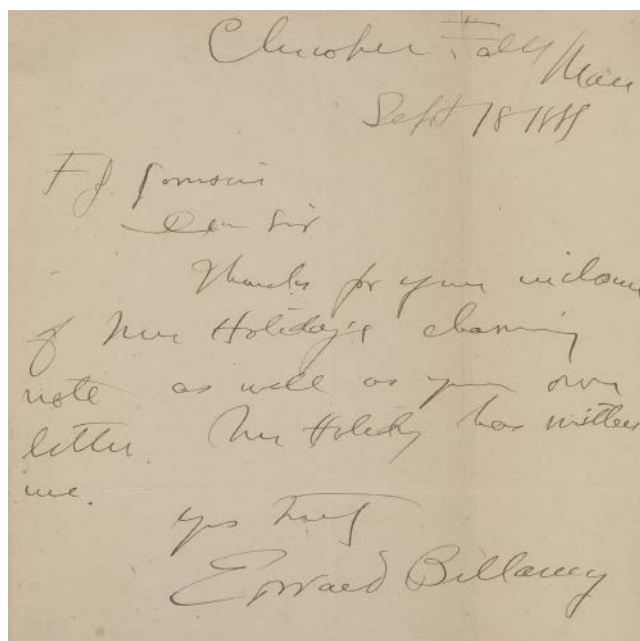 Chicopee Falls Mass
Sept 18 1889
F J.
Dear Sir
Thanks for your inclosure
of Mr Holiday's charming
note as well as your own
letter. Mr Holiday has written
me.
Yrs truly
Edward Bellamy